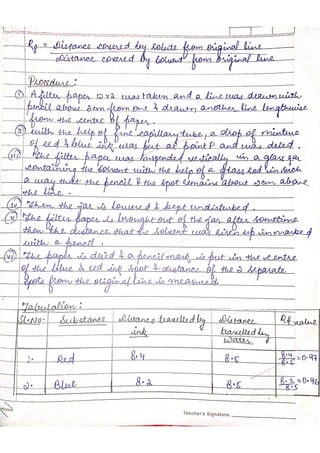 Rf = Distance covered by solute from original line
Distance covered by solvent from original line
Procedure:
(i) A filter paper was taken and a line was drawn with
pencil above 2cm from one & drawn another line lengthwise
from the centre of paper.
(ii) With the help of fine capillary tube, a drop of mixture
of red & blue ink was put at point P and was dried.
(iii) The filter paper was suspended vertically in a glass jar
containing the solvent with the help of a glass rod in such
a way that the pencil & the spot remains about 2cm above
the line.
(iv) Then the jar is lowered & kept undisturbed.
(v) The filter paper is brought out of the jar after sometime
then the distance that the solvent was risen up is marked
with a pencil.
(vi) The paper is dried & a pencil mark is put in the centre
of the blue & red ink spot & distance of the 2 separate
spots from the original line is measured
Tabulation:
Sl.No. Substance Distance travelled by ink Distance travelled by water Rf value
1. Red 8.4 8.5 8.4/8.5 = 0.97
2. Blue 8.2 8.5 8.2/8.5 = 0.96
Teacher's Signature: